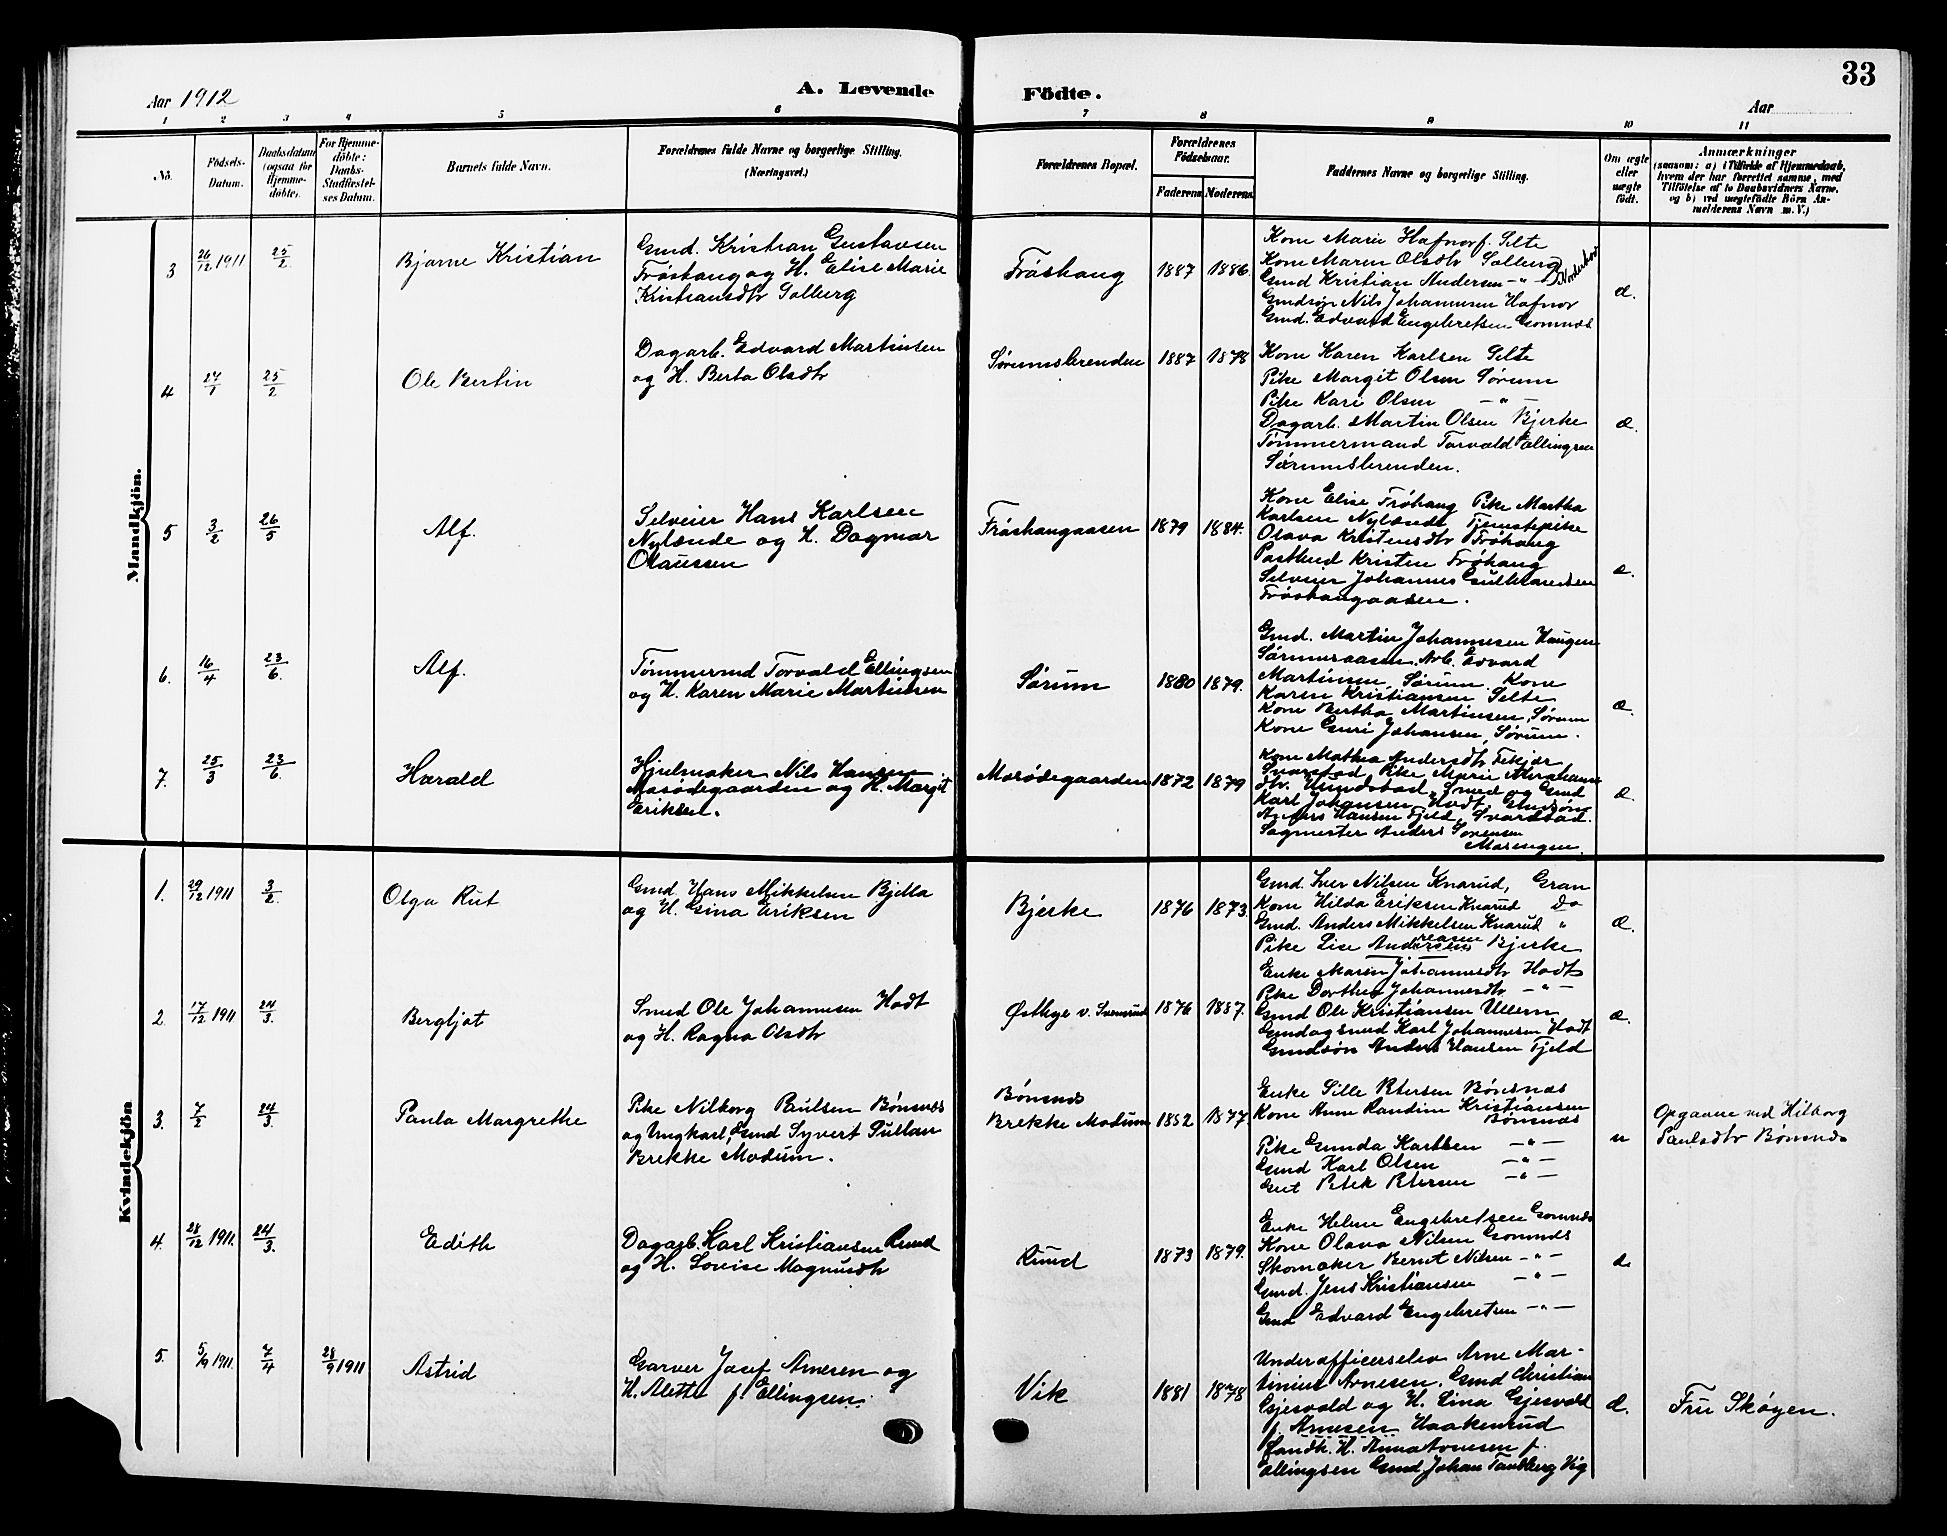 33
Aar 1912
A. Levende Födte.
Aar
1 2 3 4 5 6 7 8 9 10 11
No.
Födsels-Datum.
Daabsdatum (ogsaa for Hjemmedöbte).
For Hjemmedöbte: Daabs-Stadfæstelses Datum.
Barnets fulde Navn.
Forældrenes fulde Navne og borgerlige Stilling.
(Næringsvei.)
Forældrenes Bopæl.
Forældrenes Födselsaar.
Faderens Moderens
Faddernes Navne og borgerlige Stilling.
Om ægte eller uægte födt.
Anmærkninger
(saasom: a) i Tilfælde af Hjemmedaab, hvem der har forrettet samme, med Tilföielse af to Daabsvidners Navne, og b) ved uægtefödte Börn Anmelderens Navn m. V.)
Mandkjön.
3 26/12 1911 25/2 Bjarne Kristian
Gmd. Kristian Gustavsen
Frøshaug og H. Elise Marie
Kristiansdtr Solberg
Frøshaug 1887 1886.
Kone Marie Hafnor f. Selte
Kone Maren Olsdtr Solberg
Gmd Kristian Andersen -"-
Gmdsøn Nils Johannesen Hafnor
Gmd. Edvard Engebretsen Gomnæs
æ.
4 25/2 Ole Bertin
Dagarb. Edvard Martinsen
og H. Berta Olsdtr
Sørumsbrenden 1887 1878
Kone Karen Karlsen Selte
Pike Margit Olsen Sørum
Pike Kari Olsen -"-
Dagarb. Martin Olsen Bjerke
Tømmermand Torvald Ellingsen
Sørumsbrenden.
æ.
5 3/2 26/5 Alf.
Selveier Hans Karlsen
Nylænde og H. Dagmar
Olaussen
Frøshaugaasen 1879 1884.
Kone Elise Frøhaug Pike Martha
Karlsen Nylænde, Tjenestepike
Olava Kristensdtr Frøhaug
Postbud Kristen Frøhaug
Selveier Johannes Gulbrandsen
Frøshaugaasen.
æ.
6. 16/4 23/6. Alf.
Tømmermd Torvald Ellingsen
og H. Karen Marie Martinsen
Sørum 1880 1879.
Gmd. Martin Johannesen Haugen
Sørumsaasen. Arb. Edvard
Martinsen, Sørum. Kone
Karen Kristiansen Selte
Kone Bertha Martinsen, Sørum
Kone Guri Johansen, Sørum.
æ.
7. 25/3 23/6. Harald
Hjulmaker Nils Hansen
Mosødegaarden og H. Margit
Eriksen.
Mosødegaarden 1872 1879
Kone Mathea Andersdtr
Pike Marie Abrahams
dtr. Smed og Gmd
Karl Johansen Hodt, Gmdsøn
Anders Hansen Fjeld, Svarstad.
Sagmester Anders Sørensen
Mosengen.
æ.
Kvindekjön
1. 29/12 1911 3/2. Olga Rut
Gmd. Hans Mikkelsen Bjella
og H. Gina Eriksen
Bjerke 1876 1873.
Gmd. Iver Nilsen Knarud, Gran
Kone Hilda Eriksen Knarud do
Gmd. Anders Mikkelsen Knarud "
Pike Lise Andreasen Bjerke
æ.
2. 17/12 1911 24/3. Bergljot
Smed Ole Johannesen Hodt
og H. Ragna Olsdtr
Østbye v. Svensrud 1876 1887.
Enke Maren Johannesdtr Hodt
Pike Dorthea Johannesdtr -"-
Gmd Ole Kristiansen Ullern
Gmdogsmed Karl Johannesen Hodt
Gmdsøn Anders Hansen Fjeld
æ.
3. 7/2 24/3. Paula Margrethe
Pike Nilborg Paulsen Bønsnæs
og Ungkarl, Gmd Syvert
Brekke Modum.
Bønsnæs
Brekke Modum 1852 1877.
Enke Sille Petersen Bønsnæs
Kone Anne Randine Kristiansen
Bønsnæs
Pike Gunda Karlsen -"-
Gmd Karl Olsen -"-
Gut Peter Petersen -"-
u
Opgaave ved Hilborg
Paulsdtr Bønsnæs
4. 28/12 1911. 24/3. Edith
Dagarb. Karl Kristiansen Rund
og H. Lovise Magnusdtr
Rund 1873 1879.
Enke Helene Engebretsen Gomnæs
Kone Olava Nilsen Gomnæs
Skomaker Bernt Nilsen -"-
Gmd. Jens Kristiansen -"-
Gmd Edvard Engebretsen -"-
æ
5. 5/9 1911. 7/4 28/9 1911 Astrid
Garver Josef Arnesen og
H. Alette f. Ellingsen.
Vik 1881 1878
Underofficerselev Arne Mar-
tinius Arnesen. Gmd Christian
Gjesvold og H. Lina Gjesvold
f. Arnesen Haakenrud
Landh. H. Anna Arnesen f.
Ellingsen Gmd Johan Vig
æ.
Fru Skøyen.